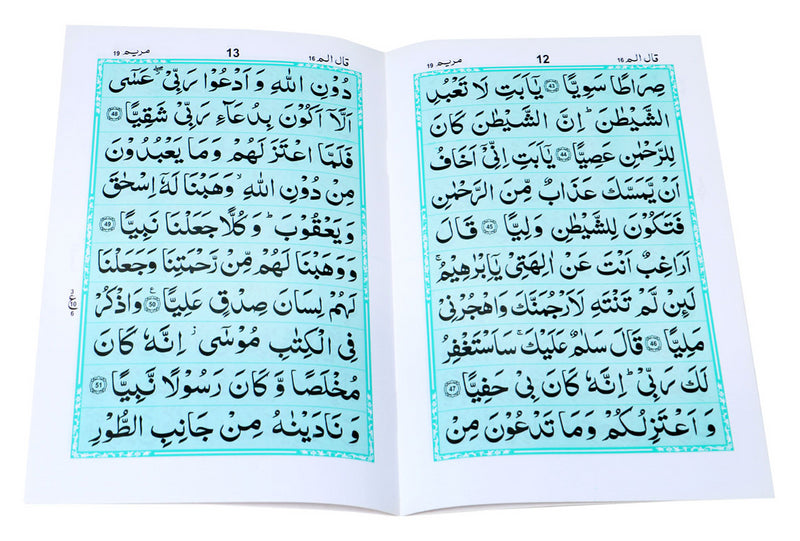 قال الم ١٦
12
مريم ١٩
صِرَاطًا سَوِيًّا 43 يٰۤاَبَتِ لَا تَعْبُدِ
الشَّيْطٰنَ ؕ اِنَّ الشَّيْطٰنَ كَانَ
لِلرَّحْمٰنِ عَصِيًّا 44 يٰۤاَبَتِ اِنِّیْۤ اَخَافُ
اَنْ يَّمَسَّكَ عَذَابٌ مِّنَ الرَّحْمٰنِ
فَتَكُوْنَ لِلشَّيْطٰنِ وَلِيًّا 45 قَالَ
اَرَاغِبٌ اَنْتَ عَنْ اٰلِهَتِیْ يٰۤاِبْرٰهِيْمُ ۚ
لَئِنْ لَّمْ تَنْتَهِ لَاَرْجُمَنَّكَ وَاهْجُرْنِیْ
مَلِيًّا 46 قَالَ سَلٰمٌ عَلَيْكَ ۚ سَاَسْتَغْفِرُ
لَكَ رَبِّیْ ؕ اِنَّهٗ كَانَ بِیْ حَفِيًّا
وَ اَعْتَزِلُكُمْ وَمَا تَدْعُوْنَ مِنْ
قال الم ١٦
13
مريم ١٩
دُوْنِ اللّٰهِ وَ اَدْعُوْا رَبِّیْ ۖ عَسٰۤی
اَلَّاۤ اَكُوْنَ بِدُعَآءِ رَبِّیْ شَقِيًّا 48
فَلَمَّا اعْتَزَلَهُمْ وَمَا يَعْبُدُوْنَ
مِنْ دُوْنِ اللّٰهِ ۙ وَهَبْنَا لَهٗۤ اِسْحٰقَ
وَ يَعْقُوْبَ ؕ وَكُلًّا جَعَلْنَا نَبِيًّا 49
وَوَهَبْنَا لَهُمْ مِّنْ رَّحْمَتِنَا وَجَعَلْنَا
لَهُمْ لِسَانَ صِدْقٍ عَلِيًّا 50 وَاذْكُرْ
فِی الْكِتٰبِ مُوْسٰۤی ؗ اِنَّهٗ كَانَ
مُخْلَصًا وَّ كَانَ رَسُوْلًا نَّبِيًّا 51
وَ نَادَيْنٰهُ مِنْ جَانِبِ الطُّوْرِ